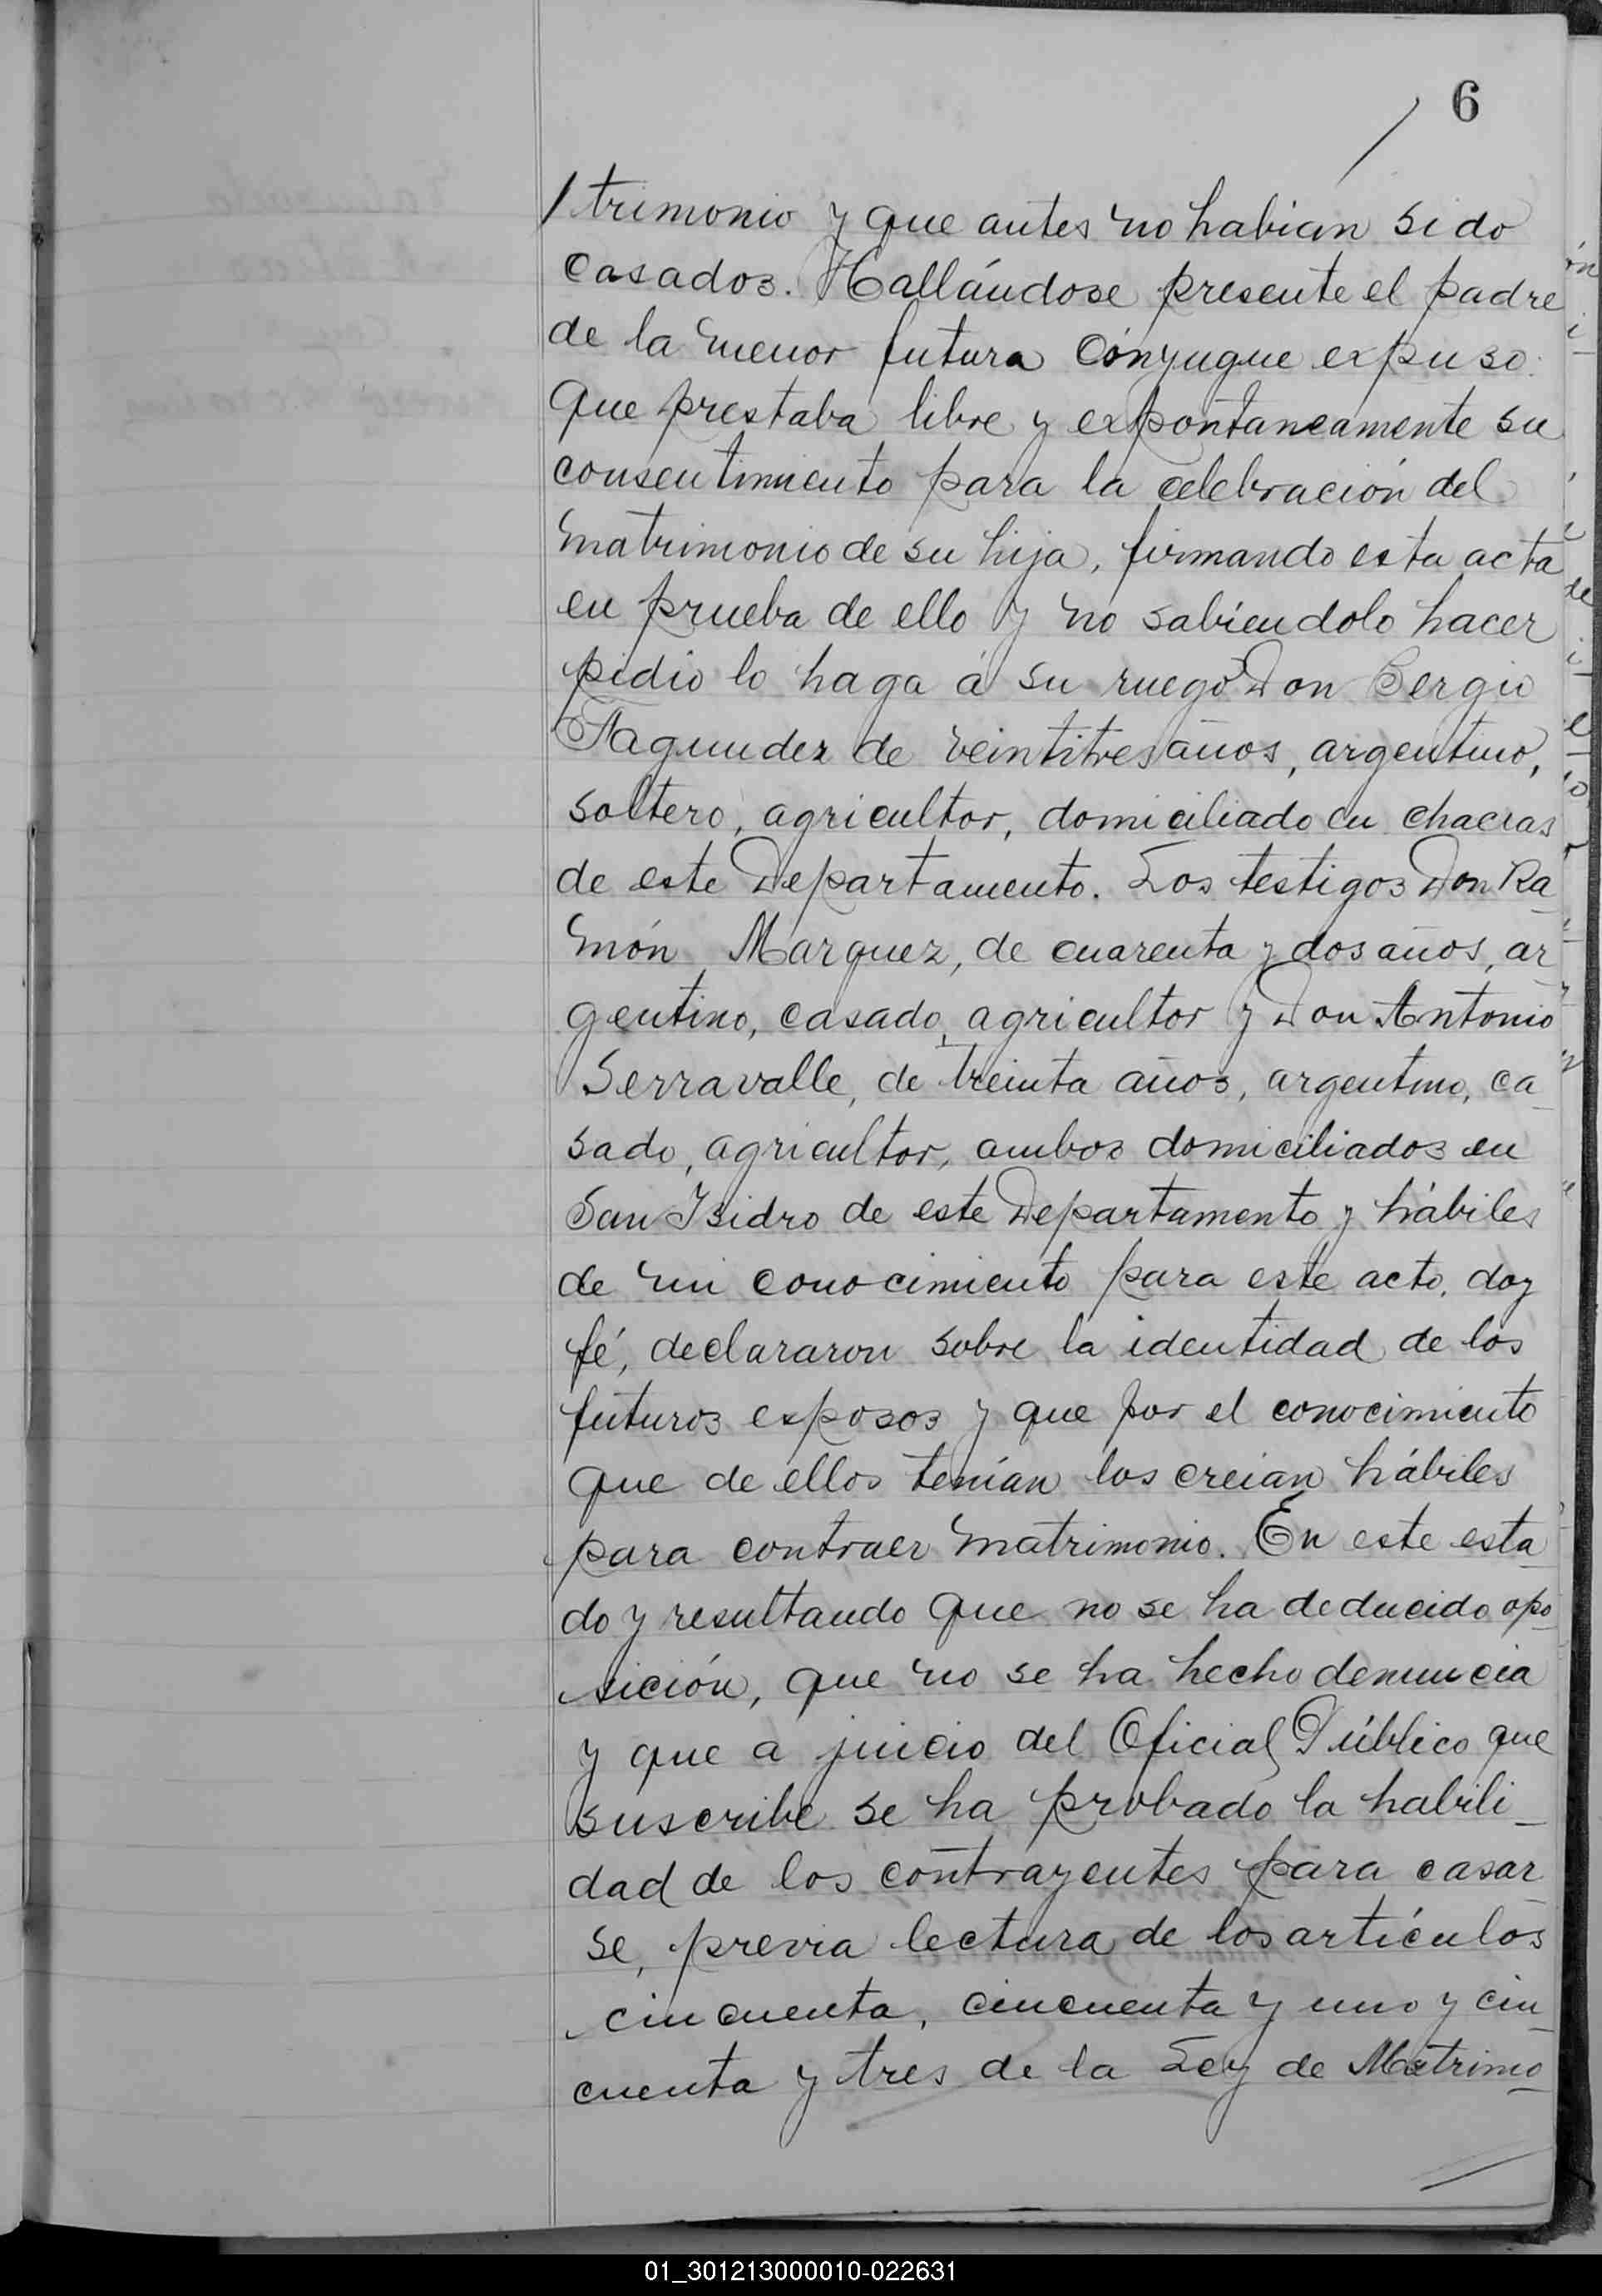 6
/trimonio y que antes no habian sido
casados. Hallándose presente el padre
de la menor futura cónyugue expuso:
Que prestaba libre y expontaneamente su
consentimiento para la celebración del
matrimonio de su hija, firmando esta acta
en prueba de ello y no sabiéndolo hacer
pidió lo haga á su ruego Don Sergio
Fagundez de veintitres años, argentino,
soltero, agricultor, domiciliado en chacras
de este Departamento. Los testigos Don Ra_
món Marquez, de cuarenta y dos años, ar_
gentino, casado, agricultor y Don Antonio
Serravalle, de treinta años, argentino, ca_
sado, agricultor, ambos domiciliados en
San Isidro de este Departamento y hábiles
de mi conocimiento para este acto, doy
fé, declararon sobre la identidad de los
futuros esposos y que por el conocimiento
que de ellos tenían los creian hábiles
para contraer matrimonio. En este esta_
do y resultando que no se ha deducido opo_
sición, que no se ha hecho denuncia
y que a juicio del Oficial Público que
suscribe se ha probado la habili_
dad de los contrayentes para casar_
se, previa lectura de los artículos
cincuenta, cincuenta y uno y cin_
cuenta y tres de la Ley de Matrimo_
01_301213000010-022631